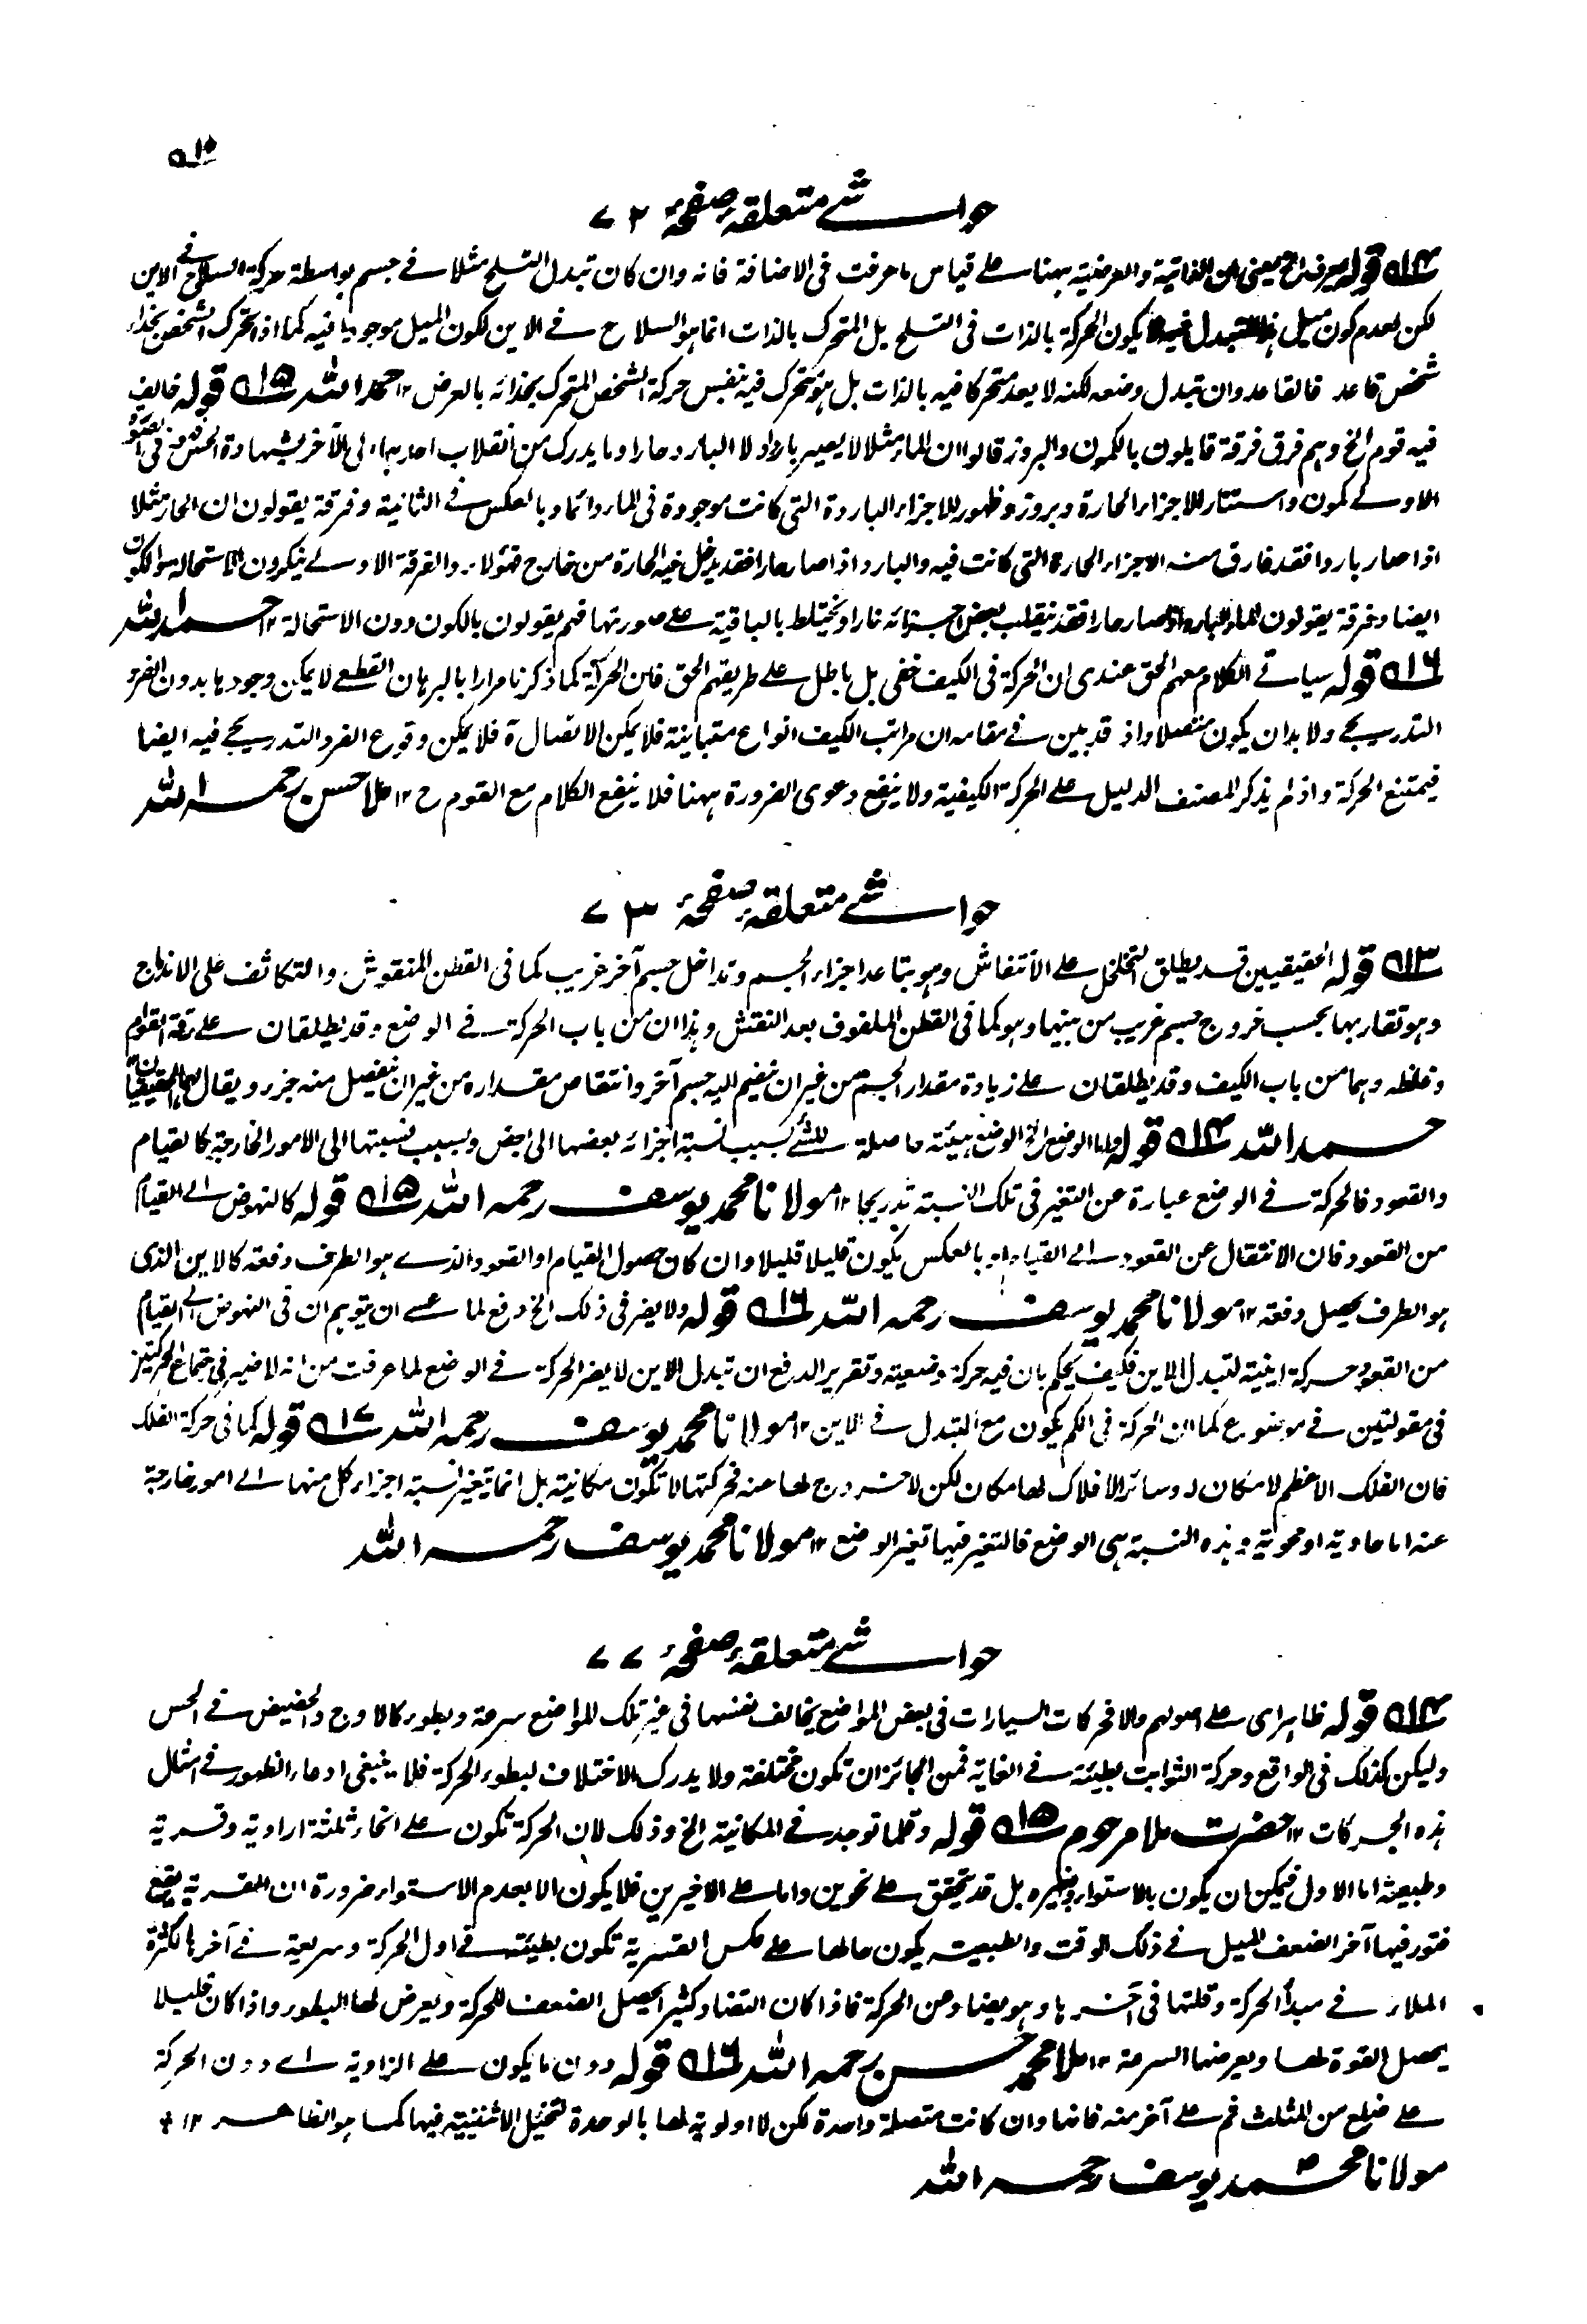 حواشے متعلقہ صفحہ ۷۲
قولہ يعرف الخ معنى الذاتية والعرضية ههنا على قياس ما عرفت فى الاضافة فانه وان كان تبدل التسلح مثلا فے جسم بواسطة حركة السلاح فے الاين
لكن لعدم كون ميل يكون الحركة بالذات فى التسلح بل المتحرك بالذات انما هو السلاح فے الاين لكون الميل موجودا فيه كما اذا تحرك الشخص بحذاء
شخص قاعد فالقاعد وان تبدل وضعه لكنه لا يعد متحركا فيه بالذات بل هو متحرك فيه بنفس حركة الشخص المتحرك بحذائه بالعرض ۱۲ حمد اللہ ۵۱۵ قولہ خالف
فيه قوم الخ وهم فرق فرقة قايلون بالكمون والبروز قالوا ان الماء مثلا لا يصير باردا ولا البارد حارا وما يدرك من انقلاب احدهما الى الآخر بشهادة الحس فى الصورة
الاولے كمون واستتار للاجزاء الحارة وبروز وظهور للاجزاء الباردة التى كانت موجودة فى الماء دائما وبالعكس فے الثانية وفرقة يقولون ان الحار مثلا
اذا صار باردا فقد فارق منه الاجزاء الحارة التى كانت فيه والبارد اذا صار حارا فقد يدخل فيه الحارة من خارج فهؤلاء والفرقة الاولے ينكرون الاستحالة والكون
ايضا وفرقة يقولون الماء البارد اذا صار حارا فقد ينقلب بعض اجزائه نارا ويختلط بالباقية علے صورتها فهم يقولون بالكون دون الاستحالة ۱۲ حمد اللہ
۵۱۶ قولہ سياتے الكلام معهم الحق عندى ان الحركة فى الكيف خفى بل باطل علے طريقهم الحق فان الحركة كما ذكرنا مرارا بالبرهان القطعے لا يمكن وجودها بدون الفرد
التدريجے ولا بد ان يكون متصلا واذ قد بين فے مقامه ان مراتب الكيف انواع متباينة فلا يمكن الاتصال ة فلا يمكن وقوع الفرد التدريجے فيه ايضا
فيمتنع الحركة واذ لم يذكر المصنف الدليل علے الحركة الكيفية ولا ينفع دعوى الضرورة ههنا فلا ينفع الكلام مع القوم ح ۱۲ ملا حسن رحمہ اللہ
حواشے متعلقہ صفحہ ۷۳
۵۱۳ قولہ الحقيقيين قد يطلق التخلخل علے الانتفاش وهو تباعد اجزاء الجسم وتداخل جسم آخر غريب كما فى القطن المنفوش والتكاثف على الاندماج
وهو تقاربها بحسب خروج جسم غريب من بينها وهو كما فى القطن الملفوف بعد النفش وهذان من باب الحركة فے الوضع وقد يطلقان علے رقة القوام
وغلظه وهما من باب الكيف وقد يطلقان علے زيادة مقدار الجسم من غير ان ينضم اليه جسم آخر وانتقاص مقداره من غير ان ينفصل منه جزء ويقال لهما الحقيقيان
حمد اللہ ۵۱۴ قولہ واما الوضع الخ الوضع هيئة حاصلة للشئ بسبب نسبة اجزائه بعضها الى بعض وبسبب نسبتها الى الامور الخارجية كالقيام
والقعود فالحركة فے الوضع عبارة عن التغير فى تلك النسبة تدريجا ۱۲ مولانا محمد یوسف رحمہ اللہ ۵۱۵ قولہ كالنهوض الے القيام
من القعود فان الانتقال عن القعود الے القيام او بالعكس يكون قليلا قليلا وان كان حصول القيام او القعود الذے هو الطرف دفعة كالاين الذى
هو الطرف يحصل دفعة ۱۲ مولانا محمد یوسف رحمہ اللہ ۵۱۶ قولہ ولا يضر فى ذلك الخ دفع لما عسے ان يتوهم ان فى النهوض الے القيام
من القعود حركة اينية لتبدل الاين فكيف يحكم بان فيه حركة وضعية وتقرير الدفع ان تبدل الاين لا يضر الحركة فے الوضع لما عرفت من انه لا ضير فى اجتماع الحركتين
فى مقولتين فے موضوع كما ان الحركة فى الكم يكون مع التبدل فے الاين ۱۲ مولانا محمد یوسف رحمہ اللہ ۵۱۷ قولہ كما فى حركة الفلك
فان الفلك الاعظم لا مكان له وسائر الافلاك لها مكان لكن لا خروج لها عنه فحركتها لا تكون مكانية بل انما يتغير نسبة اجزاء كل منها الے امور خارجة
عنه اما حاوية او محوية وهذه النسبة هى الوضع فالتغير فيها تغير الوضع ۱۲ مولانا محمد یوسف رحمہ اللہ
حواشے متعلقہ صفحہ ۷۷
۵۱۴ قولہ ظاهرا على اصولهم والا فحركات السيارات فى بعض المواضع يخالف نفسها فى غير تلك المواضع سرعة وبطوء كالاوج والحضيض فے الحس
وليكن كذلك فى الواقع وحركة الثوابت بطيئة فے الغاية فمن الجائز ان تكون مختلفة ولا يدرك الاختلاف لبطوء الحركة فلا ينبغى ادعاء الظهور فے امثال
هذه الحركات ۱۲ حضرت ملا مرحوم ۵۱۵ قولہ وقلما توجد فے المكانية الخ وذلك لان الحركة تكون علے انحاء ثلثة ارادية وقسرية
وطبيعية اما الاول فيمكن ان يكون بالاستواء وغيره بل قد يتحقق علے نحوين واما علے الاخيرين فلا يكون الا بعدم الاستواء ضرورة ان القسرية يقع
فتور فيها آخرا لضعف الميل فے ذلك الوقت والطبيعية يكون حالها علے عكس القسرية تكون بطيئة فے اول الحركة وسريعة فے آخرها لكثرة
الملاء فے مبدأ الحركة وقلتها فى آخرها وهو يضاد عن الحركة فاذا كان التضاد كثيرا يحصل الضعف للحركة ويعرض لها البطوء واذا كان قليلا
يحصل القوة لها ويعرضها السرعة ۱۲ ملا محمد حسن رحمہ اللہ ۵۱۶ قولہ دون ما يكون علے الزاوية اے دون الحركة
علے ضلع من المثلث ثم علے آخر منه فانها وان كانت متصلة واحدة لكن لا اولوية لها بالوحدة لتخيل الاثنينية فيها كما هو الظاهر ۱۲ ÷
مولانا محمد یوسف رحمہ اللہ